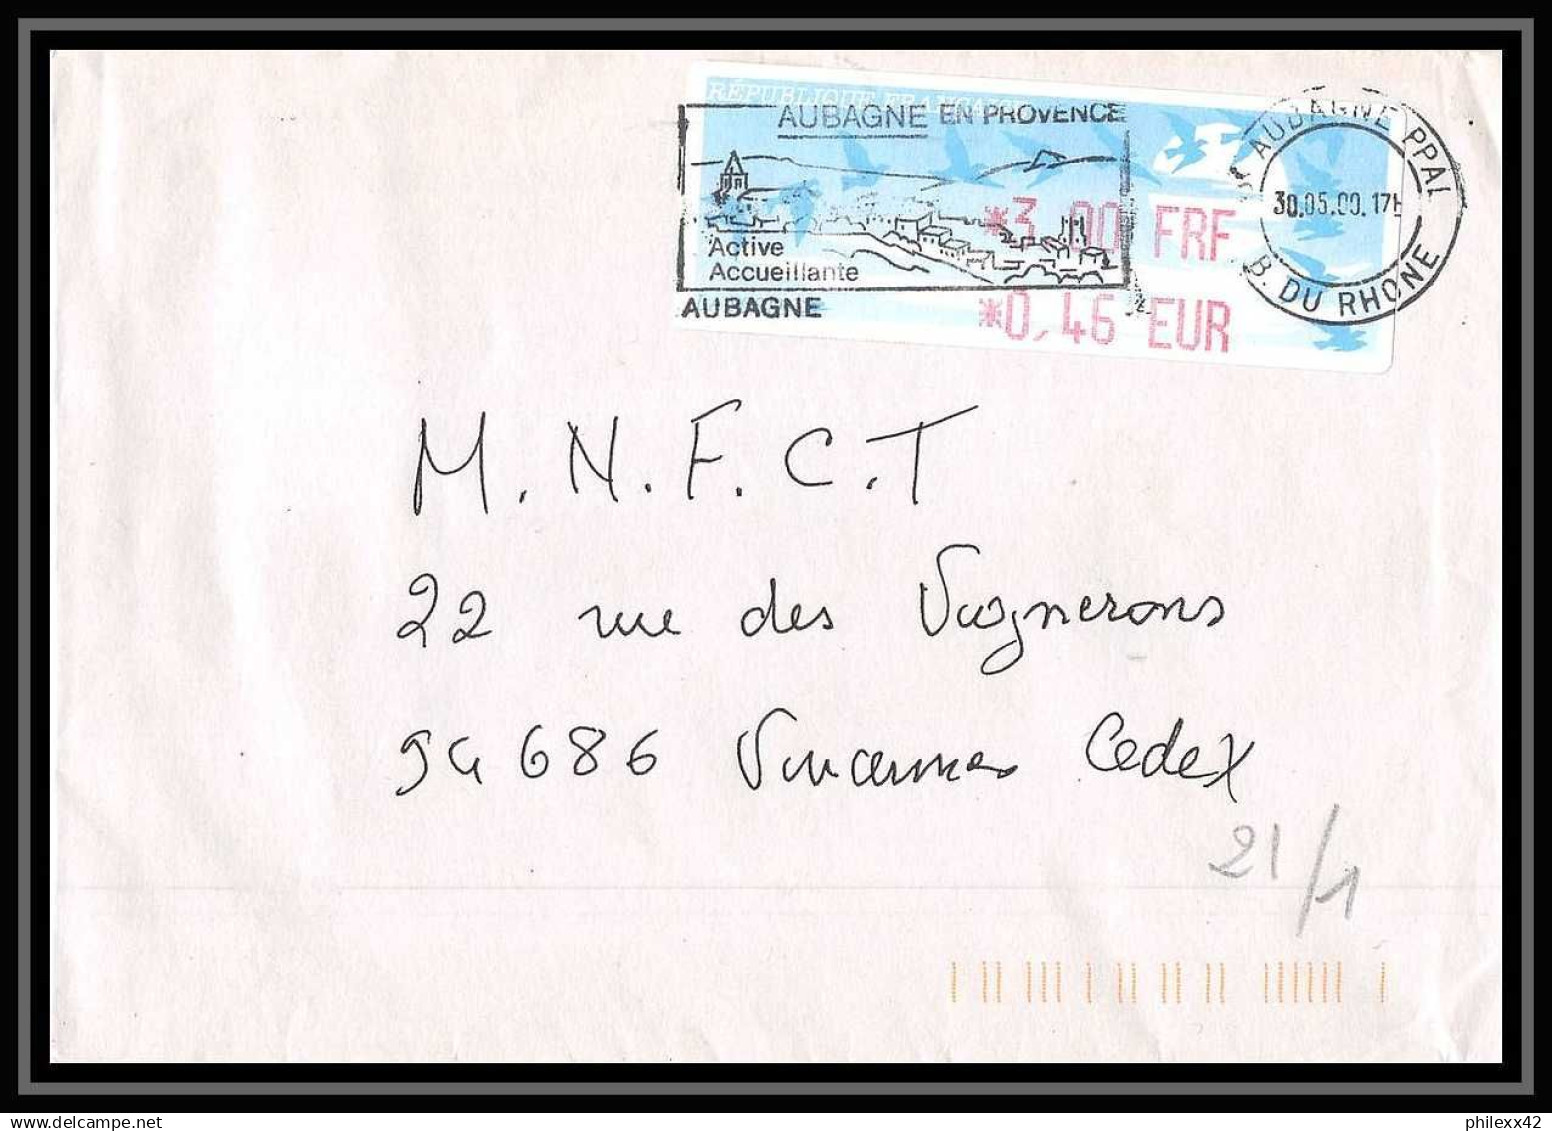 RÉPUBLIQUE FRANÇAISE
AUBAGNE EN PROVENCE
Active
Accueillante
AUBAGNE
*3,00 FRF
*0,46 EUR
AUBAGNE PPAL
30.05.00.17H
B. DU RHONE
M.N.F.C.T
22 rue des Vignerons
94686 Vincennes Cedex
21/1
philexx42